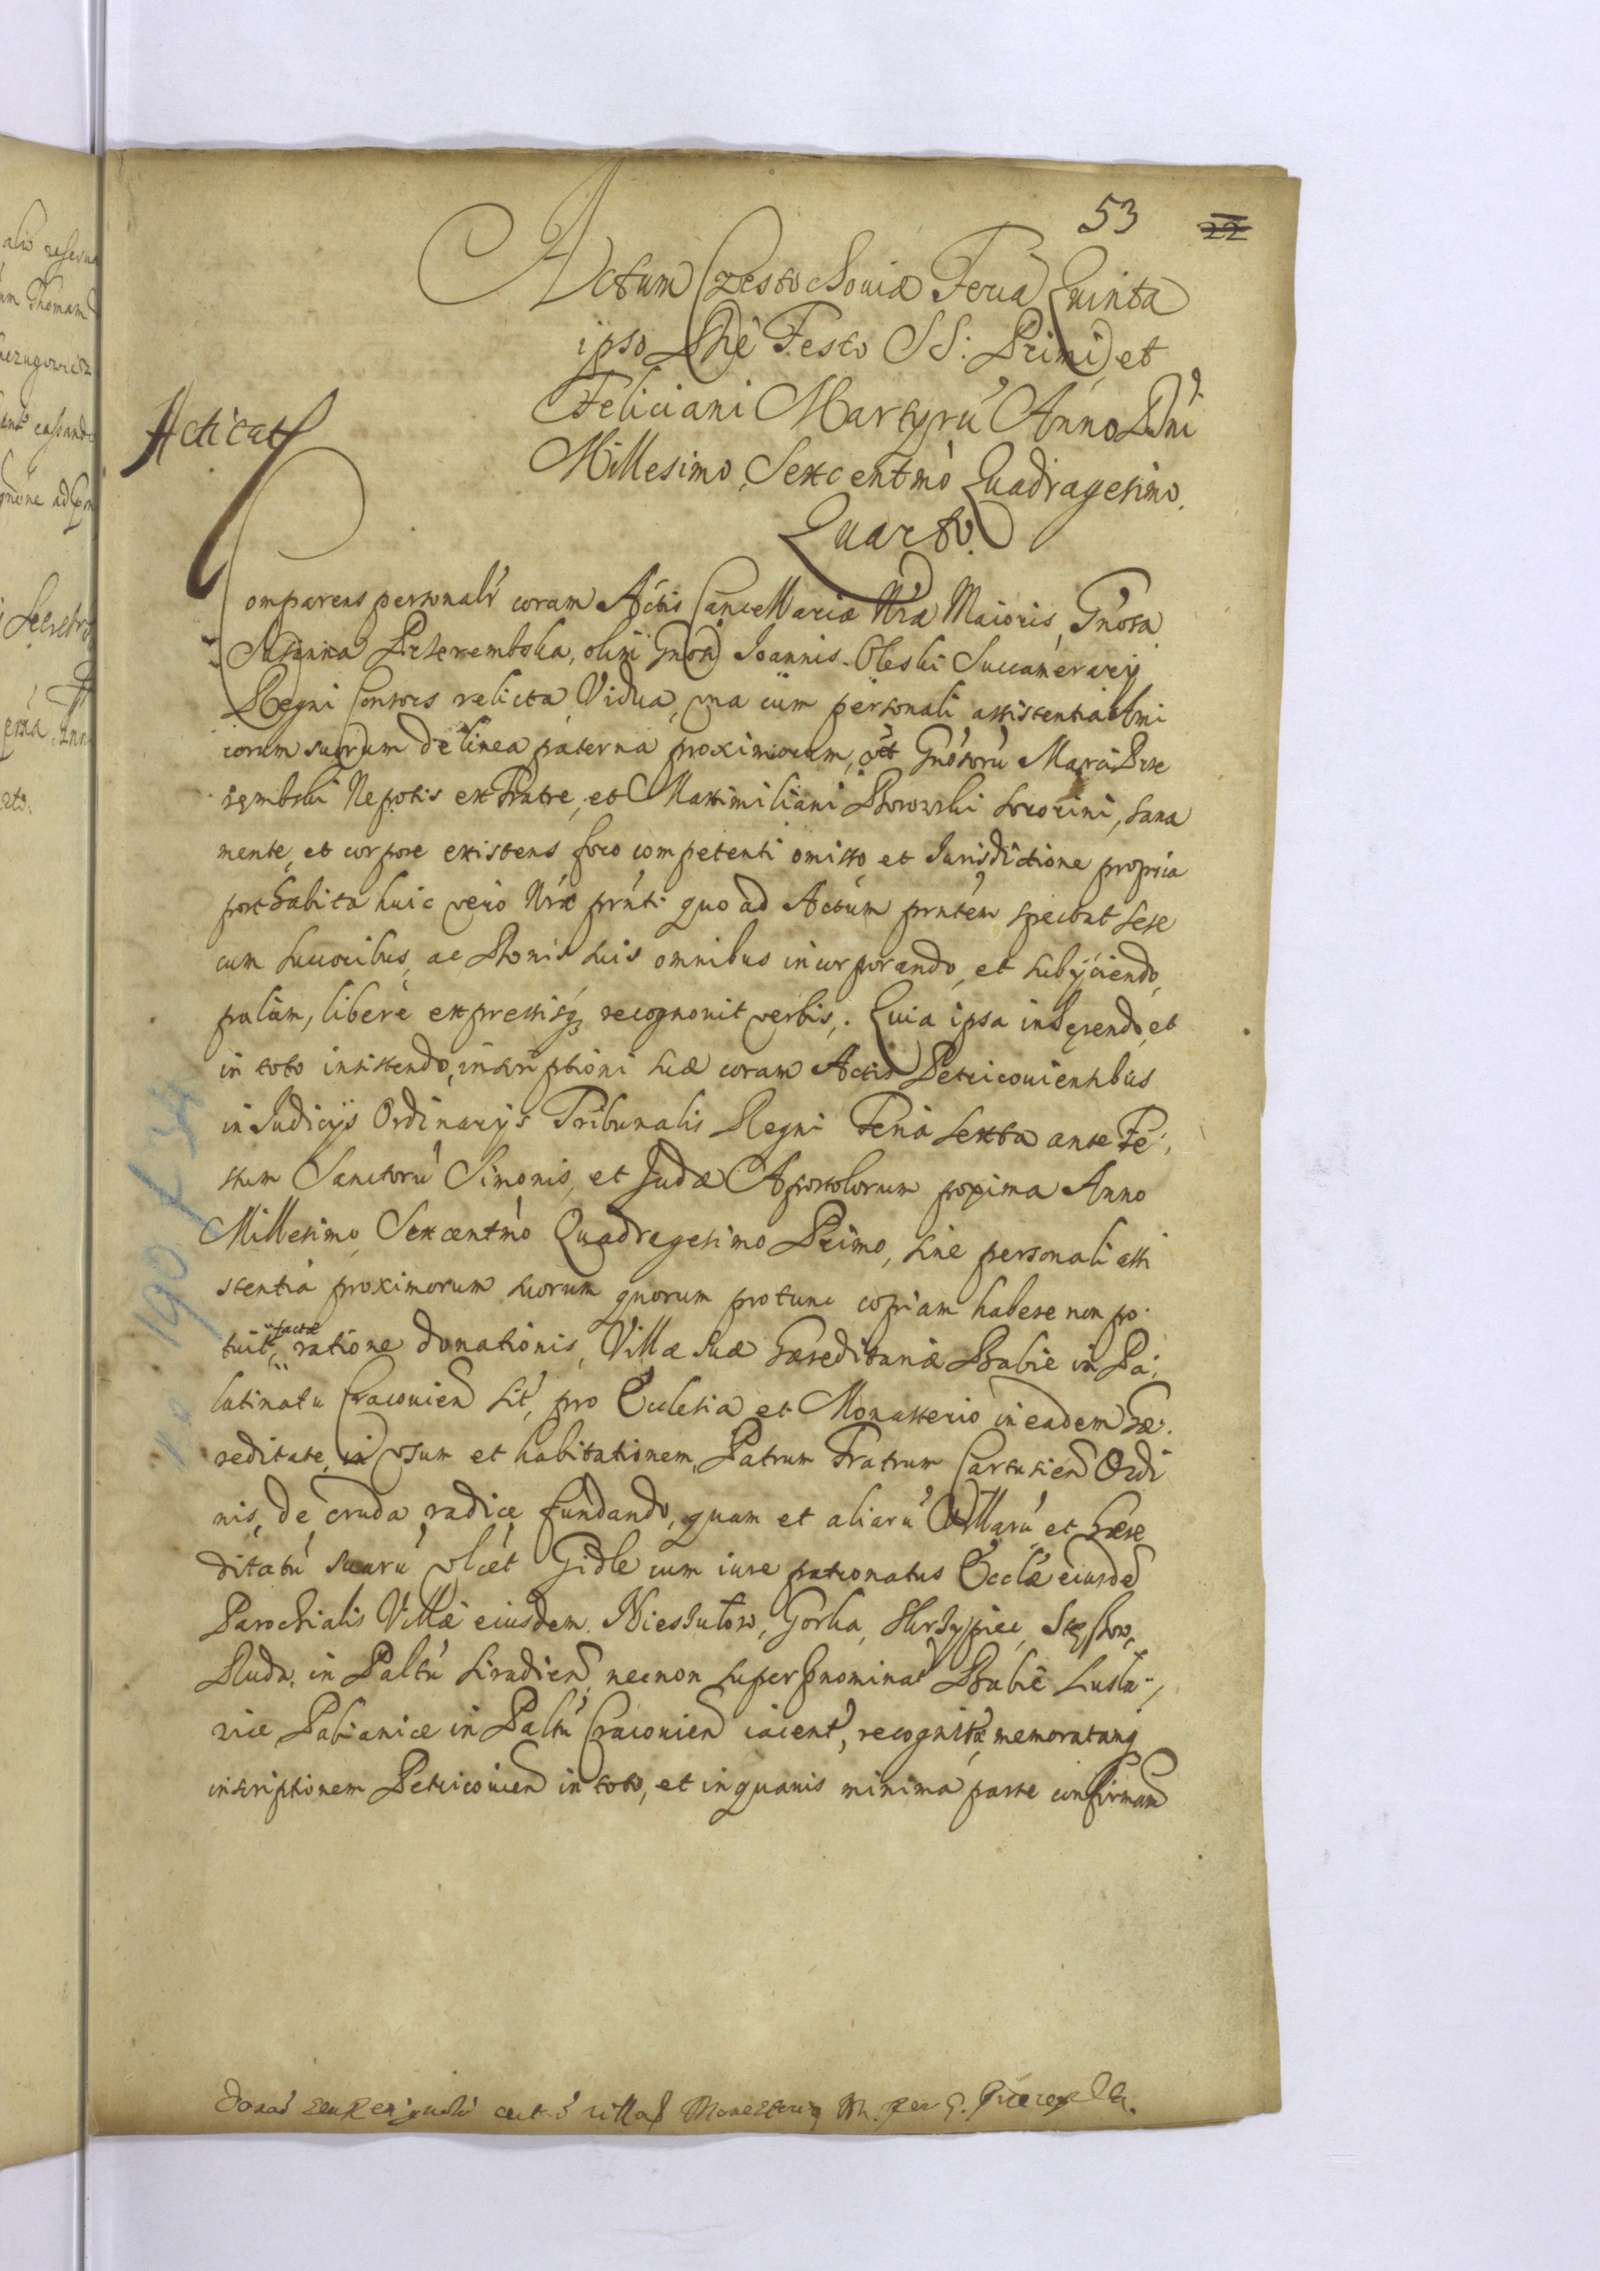 53 22
Actum Czestochoviæ Feria Quinta
ipso Die Festo SS: Primi et
Feliciani Martyrú Anno Dni
Acticat
Millesimo Sexcentmo Quadragesimo
Quarto.
Comparens personalr coram Actis Cancellariæ Nræ Maioris, Gnosa
Susanna Przerembska, olim Gnosi Joannis Oleski Succamerarij
Regni Consors relicta Vidua, una cum personali assistentia Ami
corum suorum de linea paterna proximiorum, vct Gnosorú Marci Prze
rembski Nepotis ex Fratre, et Maximiliani Psorowski sororini, sana
mente, et corpore existens foro competenti omisso et Jurisdictione propria
posthabita huic vero Nræ prnti quo ad Actúm prntem spectat sese
cum succoribus, ac Bonis suis omnibus incorporando, et subijciendo,
palàm, liberè expressisq recognovit verbis. Quia ipsa inhærendo, et
in toto insistendo, inscriptioni suæ coram Actis Petricoviensibus
in Judicijs Ordinarijs Tribunalis Regni Feria sexta ante Fe
stum Sanctorú Simonis, et Judæ Apostolorum proxima Anno
Millesimo Sexcentmo Quadragesimo Primo, sine personali assi
stentia proximorum suorum quorum protunc copiam habere non po
tuit, factæ ratione donationis, Villæ suæ Hæreditariæ Babie in Pa
latinatu Cracovien sit, pro Ecclesia et Monasterio in eadem Hæ
reditate, in usum et habitationem, Patrum Fratrum Cartusien Ordi
nis, de cruda radice fundando, quam et aliarú Villarú et Hære
ditatú suarú vlcet Gidle cum iure patronatus Ecclæ eiusdé
Parochialis Villæ eiusdem, Niesulow, Gorka, Skrzypiec, Stęszow,
Ruda, in Paltú Siradien, necnon superpnominat Babie Susla
vice Pabianice in Paltú Cracovien iacent, recognitæ memoratamq
inscriptionem Petricovien in toto, et in quavis minima parte confirmand
190 f 34